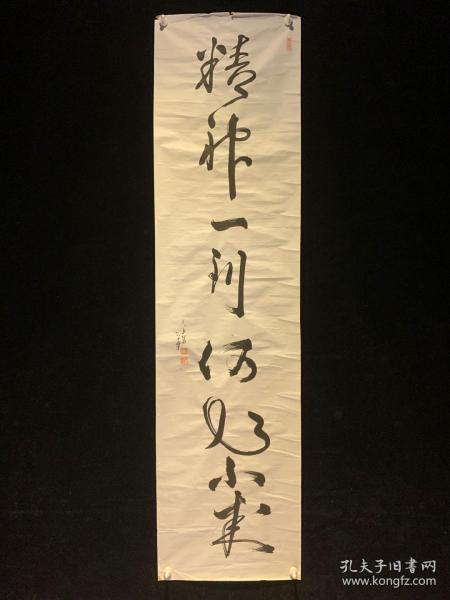 精神一到何不成
孔夫子旧书网
www.kongfz.com